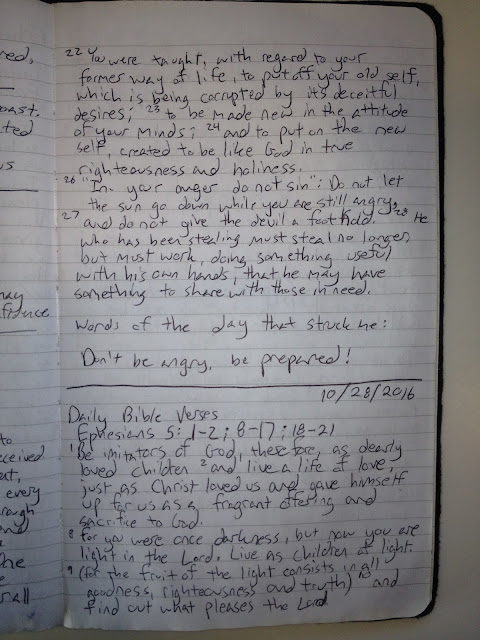 red,
oast.
ted
us
may
to
ceived
every
rough
and
one
r all
22 You were taught, with regard to your
former way of life, to put off your old self,
which is being corrupted by its deceitful
desires; 23 to be made new in the attitude
of your minds; 24 and to put on the new
self, created to be like God in true
righteousness and holiness.
26 "In your anger do not sin": Do not let
the sun go down while you are still angry,
27 and do not give the devil a foothold. 28 He
who has been stealing must steal no longer,
but must work, doing something useful
with his own hands, that he may have
something to share with those in need.
Words of the day that struck me:
Don't be angry, be prepared!
10/28/2016
Daily Bible Verses
Ephesians 5: 1-2; 8-17; 18-21
1 Be imitators of God, therefore, as dearly
loved children 2 and live a life of love,
just as Christ loved us and gave himself
up for us as a fragrant offering and
sacrifice to God.
8 for you were once darkness, but now you are
light in the Lord. Live as children of light.
9 (for the fruit of the light consists in all
goodness, righteousness and truth) 10 and
find out what pleases the Lord